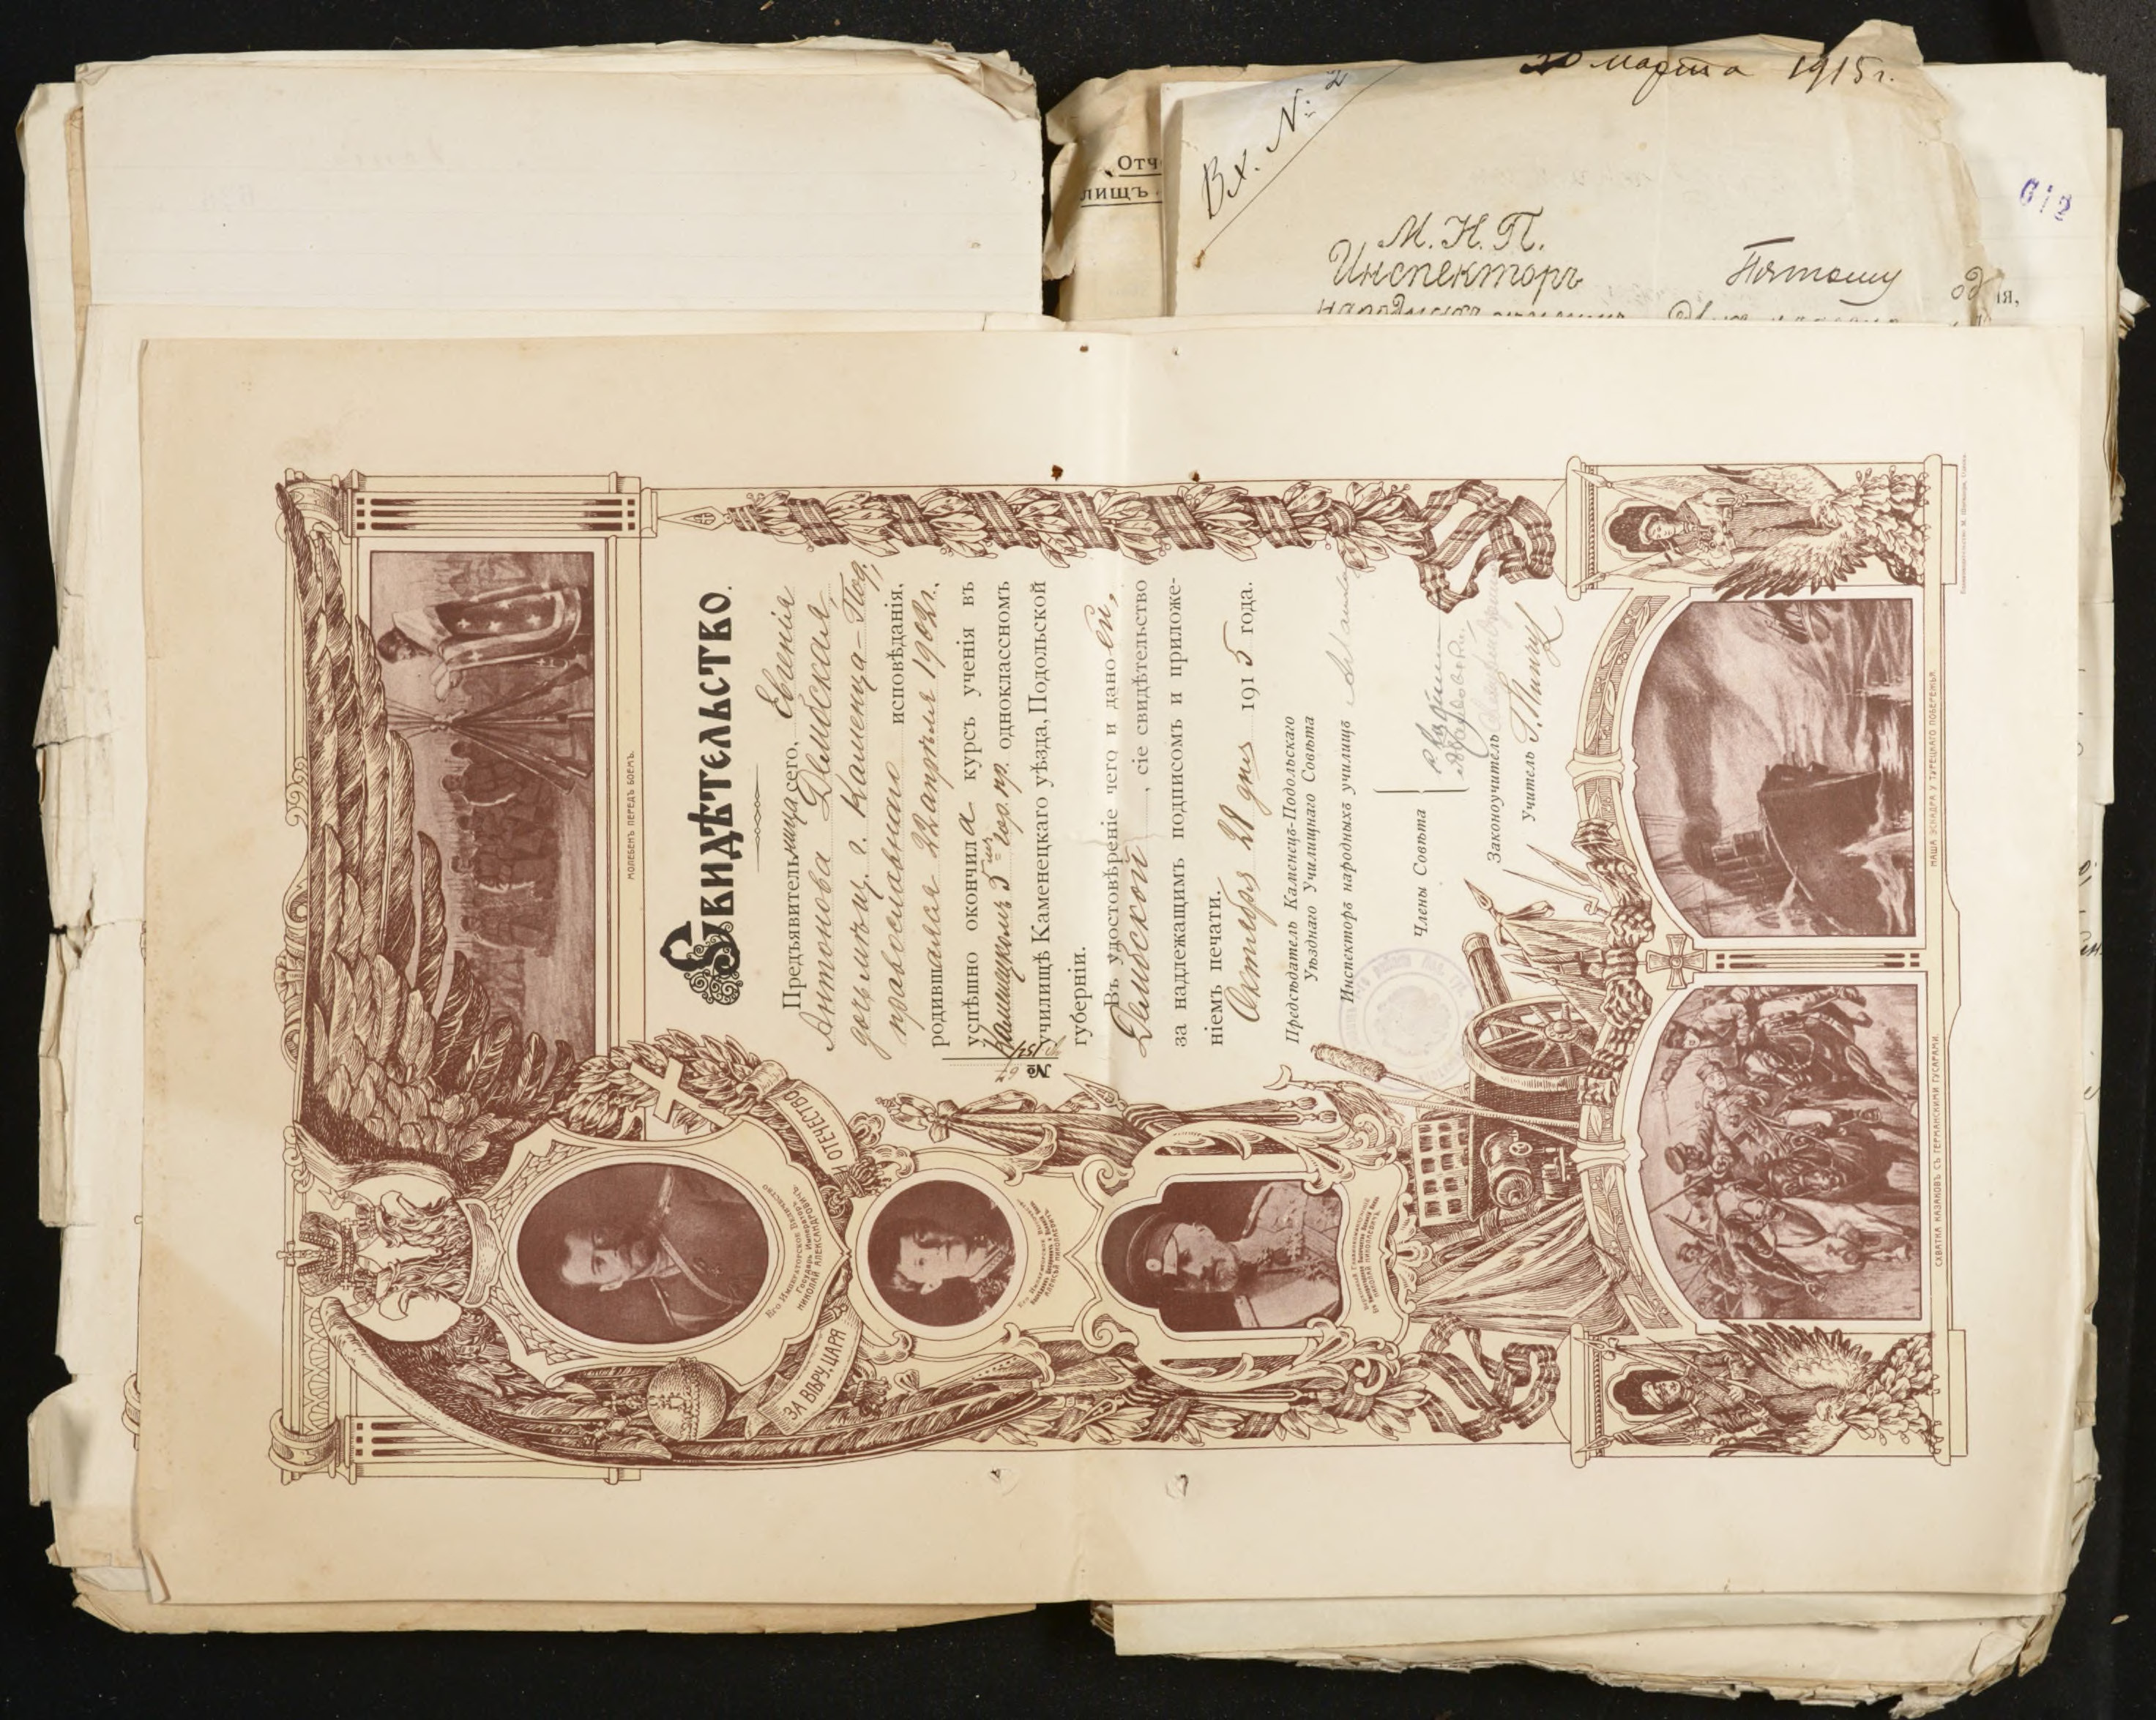 20 марта 1915 г.
Вх. №: 2
М. Н. П.
Инспекторъ
Пятому
612
Отч
лищъ
ія,
МОЛЕБЕНЪ ПЕРЕДЪ БОЕМЪ.
Свидѣтельство.
Предъявительница сего, Евгенія
Антонова Дембская,
дочь мѣщ. г. Каменца-Под.,
православнаго исповѣданія,
родившаяся 22 апрѣля 1902 г.,
успѣшно окончила курсъ ученія въ
Каменецкомъ 5 гор. пр. одноклассномъ
училищѣ Каменецкаго уѣзда, Подольской
губерніи.
Въ удостовѣреніе чего и дано ей,
Дембской, сіе свидѣтельство
за надлежащимъ подписомъ и приложе-
ніемъ печати.
Октября 28 дня 1915 года.
Предсѣдатель Каменецъ-Подольскаго
Уѣзднаго Училищнаго Совѣта
Инспекторъ народныхъ училищъ
Члены Совѣта
Законоучитель
Учитель
№
ЗА ВѢРУ, ЦАРЯ
И ОТЕЧЕСТВО
Его Императорское Величество
Государь Императоръ
НИКОЛАЙ АЛЕКСАНДРОВИЧЪ
АЛЕКСѢЙ НИКОЛАЕВИЧЪ
НИКОЛАЙ НИКОЛАЕВИЧЪ
СХВАТКА КАЗАКОВЪ СЪ ГЕРМАНСКИМИ ГУСАРАМИ.
НАША ЭСКАДРА У ТУРЕЦКАГО ПОБЕРЕЖЬЯ.